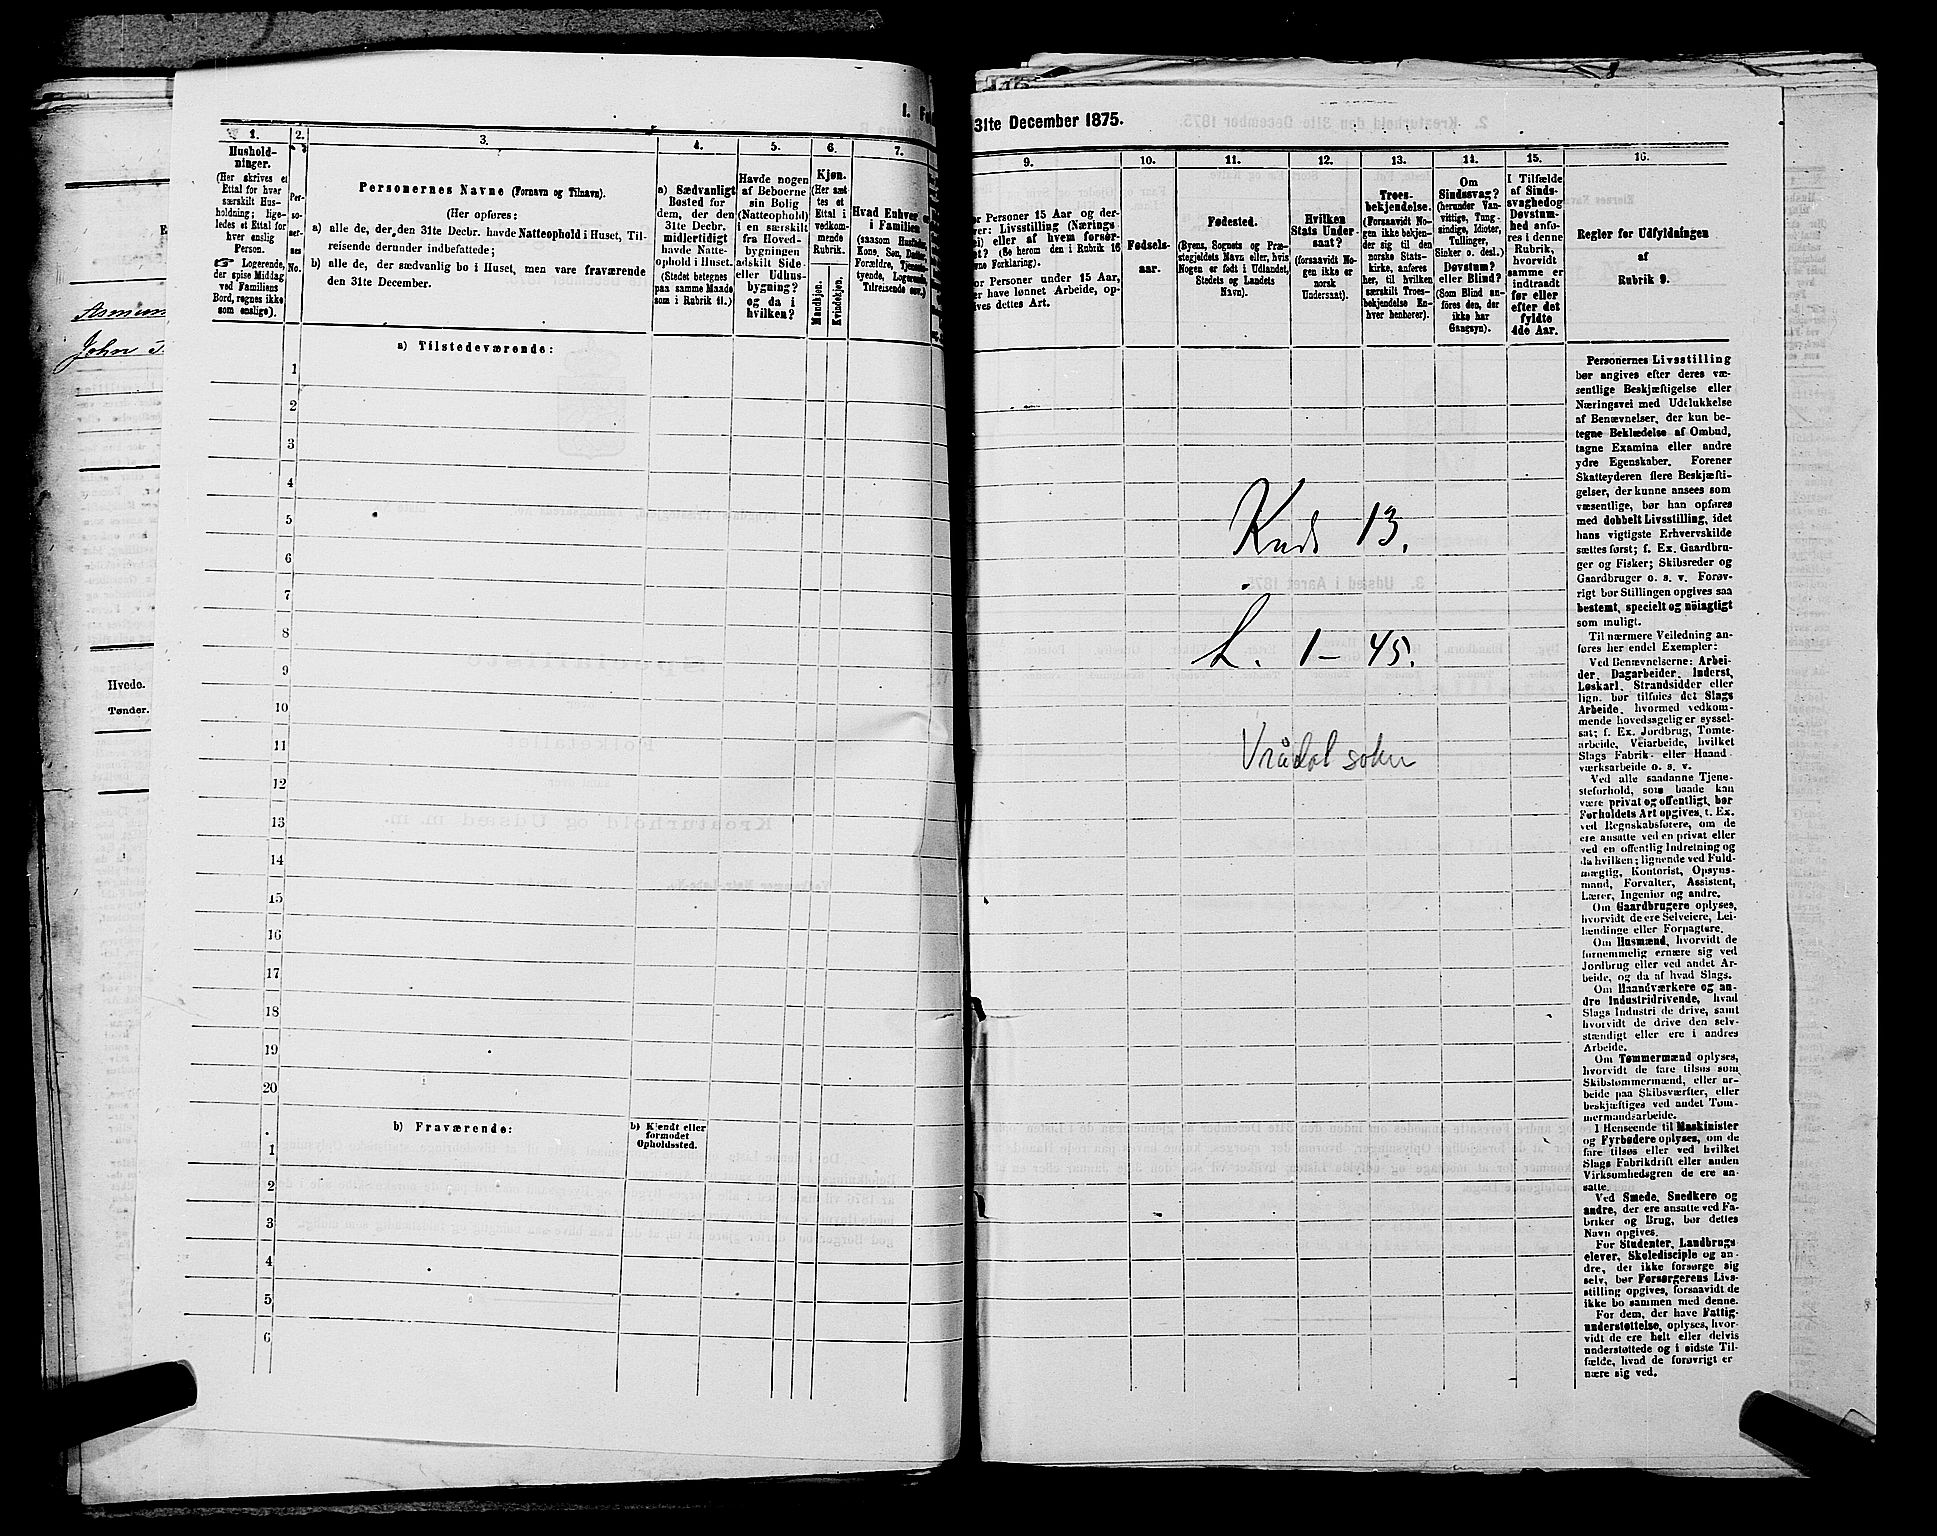 Asmun
John
Hvede.
Tønder.
1. Fo
1.
2.
3.
4.
5.
6.
7.
Hushold-
ninger.
(Her skrives et
Ettal for hver
særskilt Hus-
holdning; lige-
ledes et Ettal for
hver enslig
Person.
☞ Logerende,
der spise Middag
ved Familiens
Bord, regnes ikke
som enslige).
Per-
so-
ner-
nes
No.
Personernes Navne (Fornavn og Tilnavn).
(Her opføres:
a) alle de, der den 31te Decbr. havde Natteophold i Huset, Til-
reisende derunder indbefattede;
b) alle de, der sædvanlig bo i Huset, men vare fraværende
den 31te December.
a) Sædvanligt
Bosted for
dem, der den
31te Decbr.
midlertidigt
havde Natte-
ophold i Huset.
(Stedet betegnes
paa samme Maade
som i Rubrik 11.)
Havde nogen
af Beboerne
sin Bolig
(Natteophold)
i en særskilt
fra Hoved-
bygningen
adskilt Side-
eller Udhus-
bygning?
og da i
hvilken?
Kjøn.
(Her sæt
tes et
Ettal i
vedkom-
mende
Rubrik.
Mandkjøn.
Kvindekjøn.
Hvad Enhver er
i Familien
(saasom Husfader,
Kone, Søn, Datter,
Forældre, Tjeneste-
tyende, Logerende,
Tilreisende osv.)
a) Tilstedeværende:
1
2
3
4
5
6
7
8
9
10
11
12
13
14
15
16
17
18
19
20
b) Fraværende:
b) Kjendt eller
formodet
Opholdssted.
1
2
3
4
5
6
31te December 1875.
9.
10.
11.
12.
13.
14.
15.
16.
or Personer 15 Aar og der-
ver: Livsstilling (Nærings
ei) eller af hvem forsør-
et? (Se herom den i Rubrik 16
vne Forklaring).
or Personer under 15 Aar,
er have lønnet Arbeide, op-
gives dettes Art.
Fødsels-
aar.
Fødested.
(Byens, Sognets og Præ-
stegjeldets Navn eller, hvis
Nogen er født i Udlandet,
Stedets og Landets
Navn).
Hvilken
Stats Under
saat?
(forsaavidt No-
gen ikke er
norsk
Undersaat).
Troes-
bekjendelse.
(Forsaavidt No-
gen ikke bekjen-
der sig til den
norske Stats-
kirke, anføres
her, til hvilken
særskilt Troes-
bekjendelse En-
hver henhører).
Om
Sindssvag?
(herunder Van-
vittige, Tung-
sindige, Idioter,
Tullinger,
Sinker o. desl.)
Døvstum?
eller Blind?
(Som Blind an-
føres den, der
ikke har
Gangsyn).
I Tilfælde
af Sinds-
svaghed og
Døvstum-
hed anfø-
res i denne
Rubrik,
hvorvidt
samme er
indtraadt
før eller
efter det
fyldte
4de Aar.
Regler for Udfyldningen
af
Rubrik 9.
Kreds 13.
L. 1 - 45.
Vrådal sokn
Personernes Livsstilling
bør angives efter deres væ-
sentlige Beskjæftigelse eller
Næringsvei med Udelukkelse
af Benævnelser, der kun be-
tegne Beklædelse af Ombud,
tagne Examina eller andre
ydre Egenskaber. Forener
Skatteyderen flere Beskjæfti-
gelser, der kunne ansees som
væsentlige, bør han opføres
med dobbelt Livsstilling, idet
hans vigtigste Erhvervskilde
sættes først; f. Ex. Gaardbru-
ger og Fisker; Skibsreder og
Gaardbruger o. s. v. Forøv-
rigt bør Stillingen opgives saa
bestemt, specielt og nöiagtigt
som muligt.
Til nærmere Veiledning an-
føres her endel Exempler:
Ved Benævnelserne: Arbei-
der, Dagarbeider, Inderst,
Løskarl, Strandsidder eller
lign. bør tilføies det Slags
Arbeide, hvormed vedkom-
mende hovedsagelig er syssel-
sat; f. Ex. Jordbrug, Tomte-
arbeide, Veiarbeide, hvilket
Slags Fabrik- eller Haand-
værksarbeide o. s. v.
Ved alle saadanne Tjene-
steforhold, som baade kan
være privat og offentligt, bør
Forholdets Art opgives, t. Ex.
ved Regnskabsførere, om de
ere ansatte ved en privat eller
ved en offentlig Indretning og
da hvilken; lignende ved Fuld-
mægtig, Kontorist, Opsyns-
mand, Forvalter, Assistent,
Lærer, Ingeniør og andre.
Om Gaardbrugere oplyses,
hvorvidt de ere Selveiere, Lei-
lændinge eller Forpagtere.
Om Husmænd, hvorvidt de
fornemmelig ernære sig ved
Jordbrug eller ved andet Ar-
beide, og da af hvad Slags.
Om Haandværkere og an-
dre Industridrivende, hvad
Slags Industri de drive, samt
hvorvidt de drive den selv-
stændigt eller ere i andres
Arbeide.
Om Tømmermænd oplyses,
hvorvidt de fare tilsøs som
Skibstømmermænd, eller ar-
beide paa Skibsværfter, eller
beskjæftiges ved andet Tøm-
mermandsarbeide.
I Henseende til Maskinister
og Fyrbødere oplyses, om de
fare tilsøs eller ved hvilket
Slags Fabrikdrift eller anden
Virksomhedsgren de ere an-
satte.
Ved Smede, Snedkere og
andre, der ere ansatte ved Fa-
briker og Brug, bør dettes
Navn opgives.
For Studenter, Landbrugs
elever, Skoledisciple og an-
dre, der ikke forsørge sig
selv, bør Forsørgerens Livs-
stilling opgives, forsaavidt de
ikke bo sammen med denne.
For dem, der have Fattig-
understøttelse, oplyses, hvor-
vidt de ere helt eller delvis
understøttede og i sidste Til-
fælde, hvad de forøvrigt er
nære sig ved.